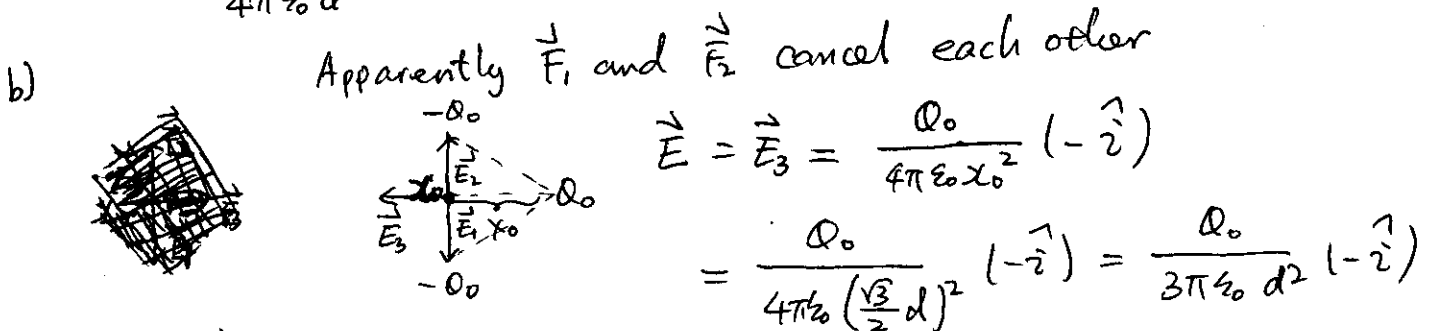 4π ε₀ d
b)
Apparently F⃗₁ and F⃗₂ cancel each other
-Q₀
E⃗₂
x₀
Q₀
E⃗₃
E⃗₁ x₀
-Q₀
E⃗ = E⃗₃ = Q₀ / (4π ε₀ x₀²) (-î)
= Q₀ / (4π ε₀ (√3/2 d)²) (-î) = Q₀ / (3π ε₀ d²) (-î)